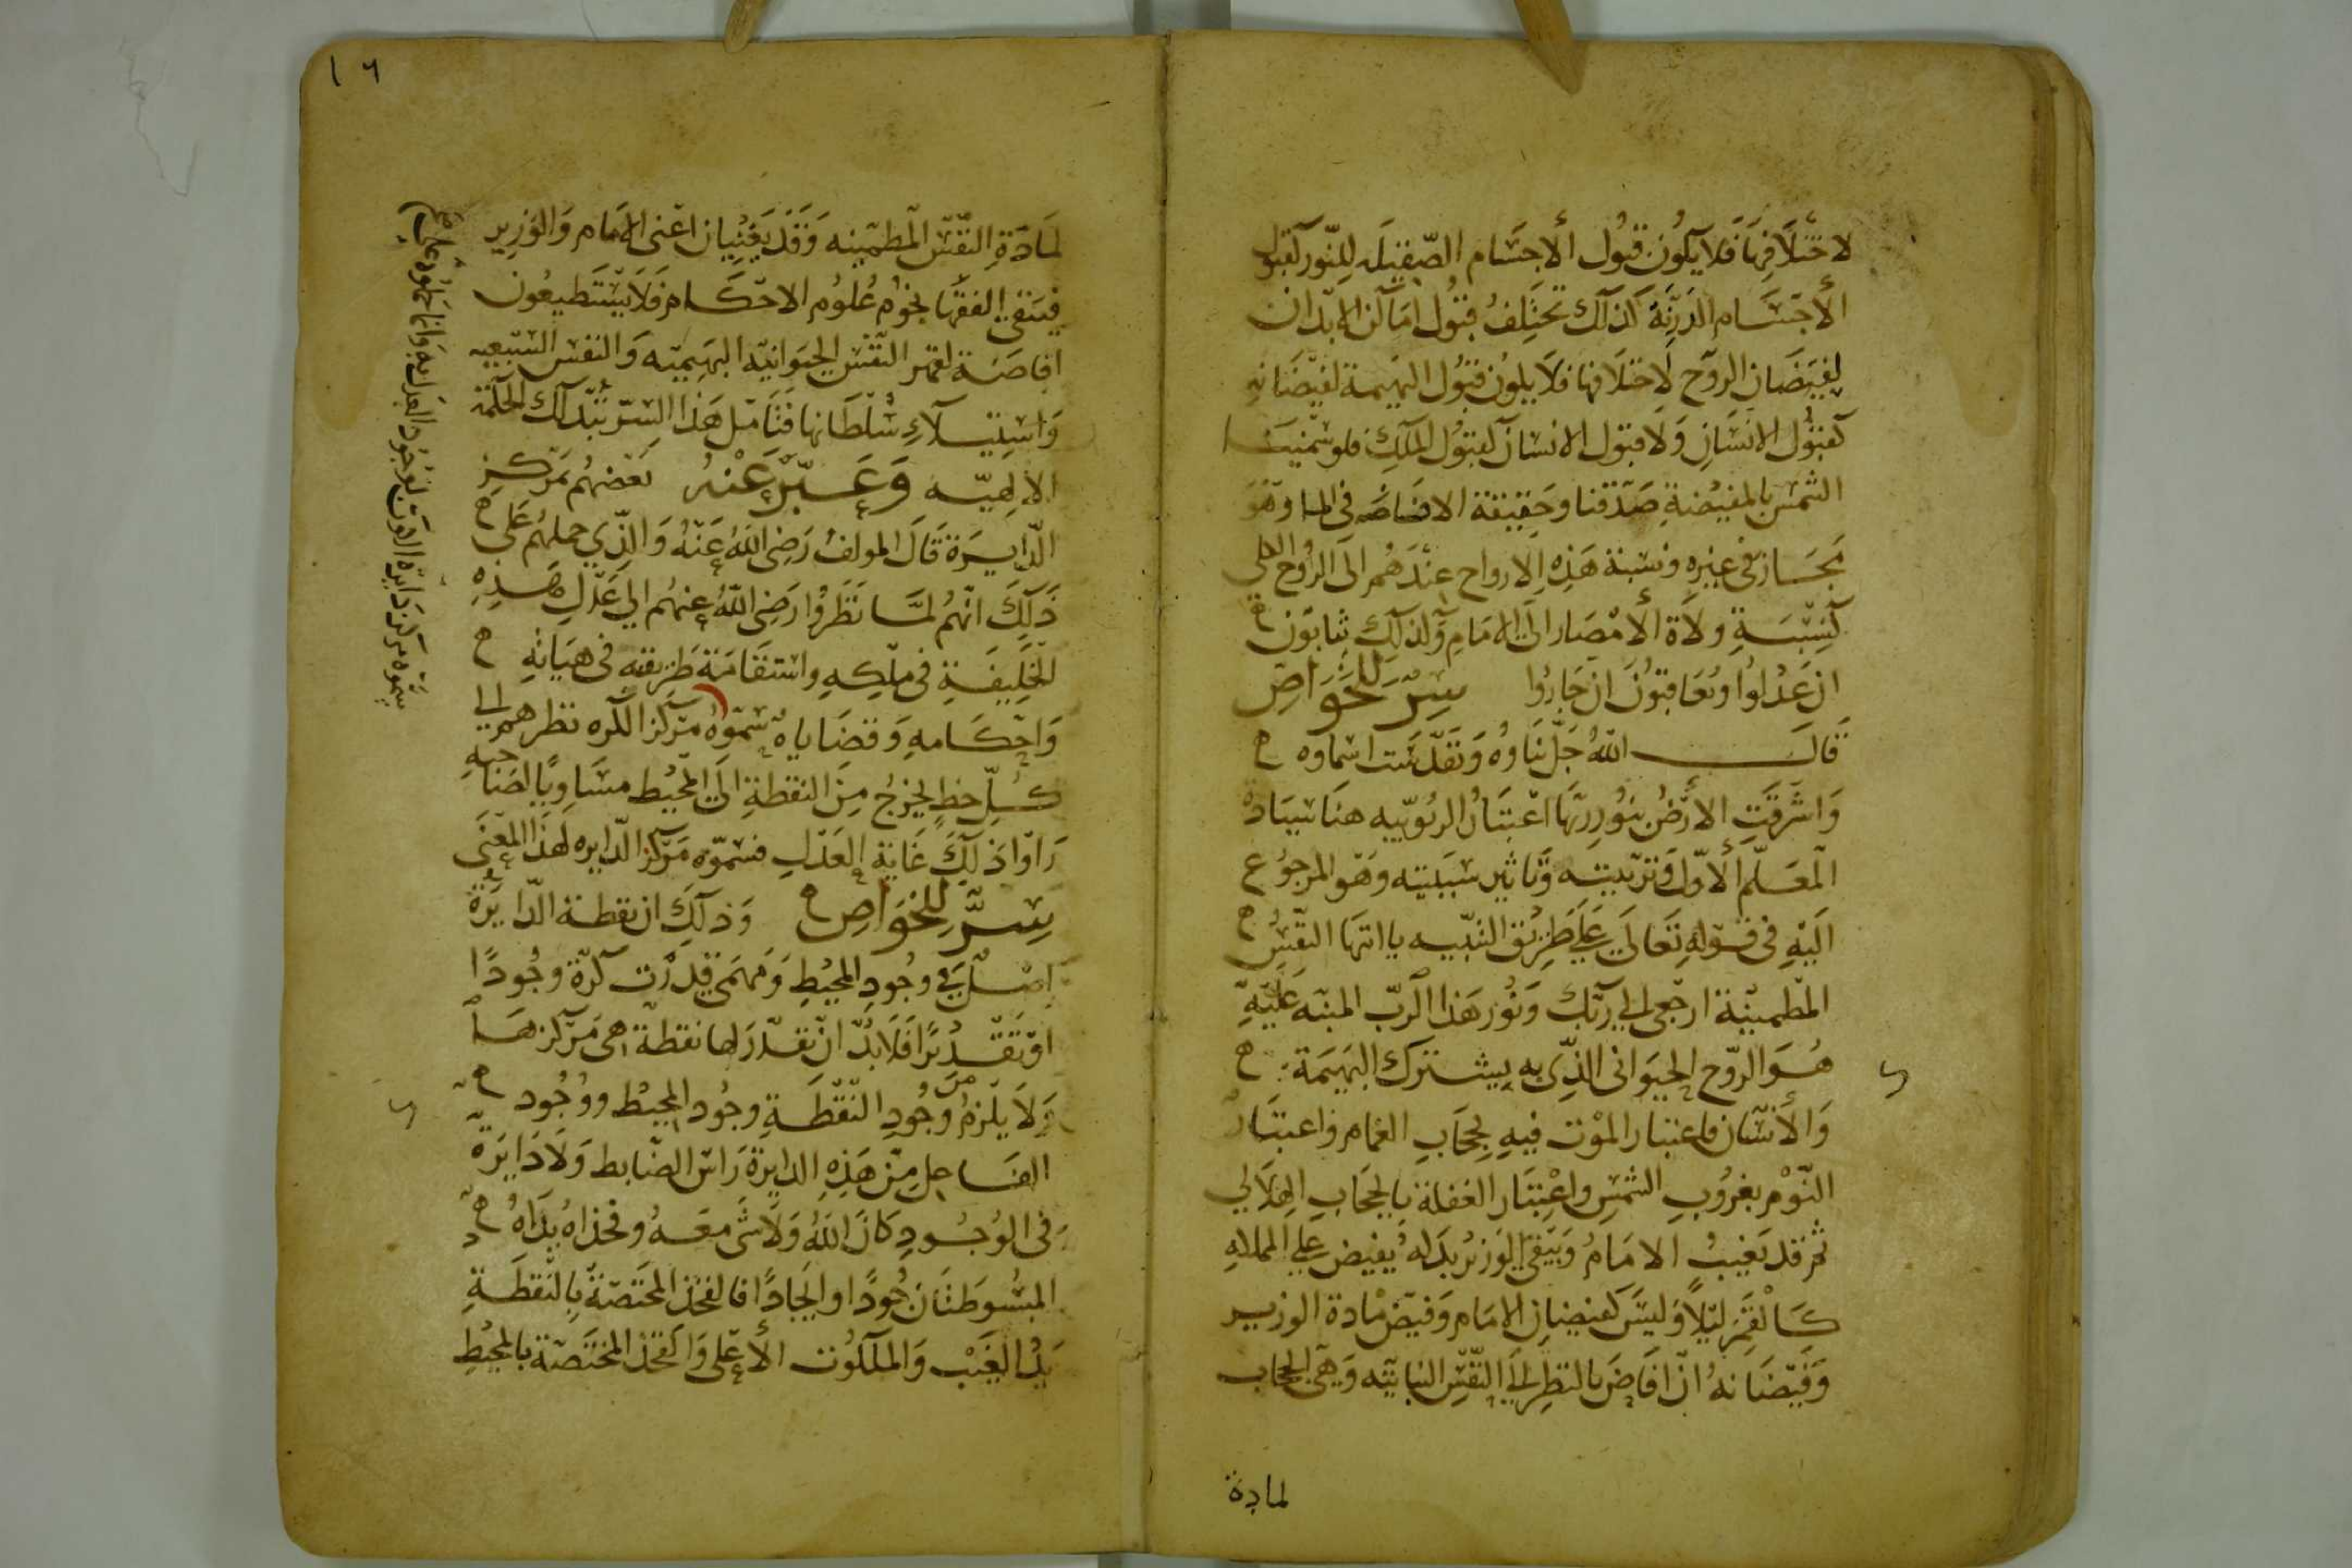 لاختلافها فلا يكون قبول الأجسام الصقيله للنور كقبول
الأجسام الدرنة كذلك تختلف قبول اماكن الابدان
لفيضان الروح لاختلافها فلا يكون قبول البهيمة لفيضانه
كقبول الانسان ولا قبول الانسان كقبول الملك فلو سمينا
الشمس بالمفيضة صدقنا وحقيقة الافاضه في الما وهو
مجاز في غيره ونسبة هذه الارواح عندهم الى الروح الكلي
كنسبة ولاة الأمصار الى الامام ولذلك يثابون
ان عدلوا ويعاقبون ان جاروا سر للخواص
قال الله جل ثناوه وتقدست اسماوه
واشرقت الأرض بنور ربها اعتبار الربوبيه هنا سيادة
المعلم الأول وتربيته وتاثير سببيته وهو المرجوع
اليه في قوله تعالى على طريق التنبيه ياايتها النفس
المطمينة ارجعي الى ربك ونور هذا الرب المنبه عليه
هو الروح الحيواني الذي به يشترك البهيمة
والأنسان فاعتبار الموت فيه بحجاب الغمام واعتبار
النوم بغروب الشمس واعتبار الغفلة بالحجاب الهلالي
ثم قد يغيب الامام ويبقى الوزير بدله يفيض على المملكه
كالقمر ليلا وليس كفيضان الامام وفيض مادة الوزير
وفيضانه ان افاض بالنظر الى النفس النباتيه وهي الحجاب
لمادة
١٦
لمادة النفس المطمينه وقد يغيبان اعني الامام والوزير
فيبقى الفقها نجوم علوم الاحكام فلا يستطيعون
افاضة لقهر النفس الحيوانيه البهيميه والنفس السبعيه
واستيلاء سلطانها فتامل هذا السر تبد لك الحكمة
الالهيه وعبر عنه بعضهم بمركز
الدايرة قال المولف رضي الله عنه والذي حملهم على
ذلك انهم لما نظروا رضي الله عنهم الى عدل هذه
الخليفة في ملكه واستقامة طريقته في هياته
واحكامه وقضاياه سموه مركز الكره نظرهم الى
كل خط يخرج من النقطة الى المحيط مساويا لصاحبه
راوا ذلك غاية العدل فسموه مركز الدايره لهذا المعنى
سر للخواص وذلك ان نقطة الدايرة
اصل في وجود المحيط ومهمى قدرت كرة وجودا
او تقديرا فلا بد ان تقدر لها نقطة هي مركزها
ولا يلزم من وجود النقطة وجود المحيط ووجود
الفاعل من هذه الدايرة راس الضابط ولا دايرة
في الوجود كان الله ولا شى معه وفخذاه يداه
المبسوطتان جودا وايجادا فالفخذ المختصة بالنقطة
يد الغيب والملكوت الأعلى والفخذ المختصة بالمحيط
سموه مركز دايرة الكون لوجود العدل به وانما حملوه على